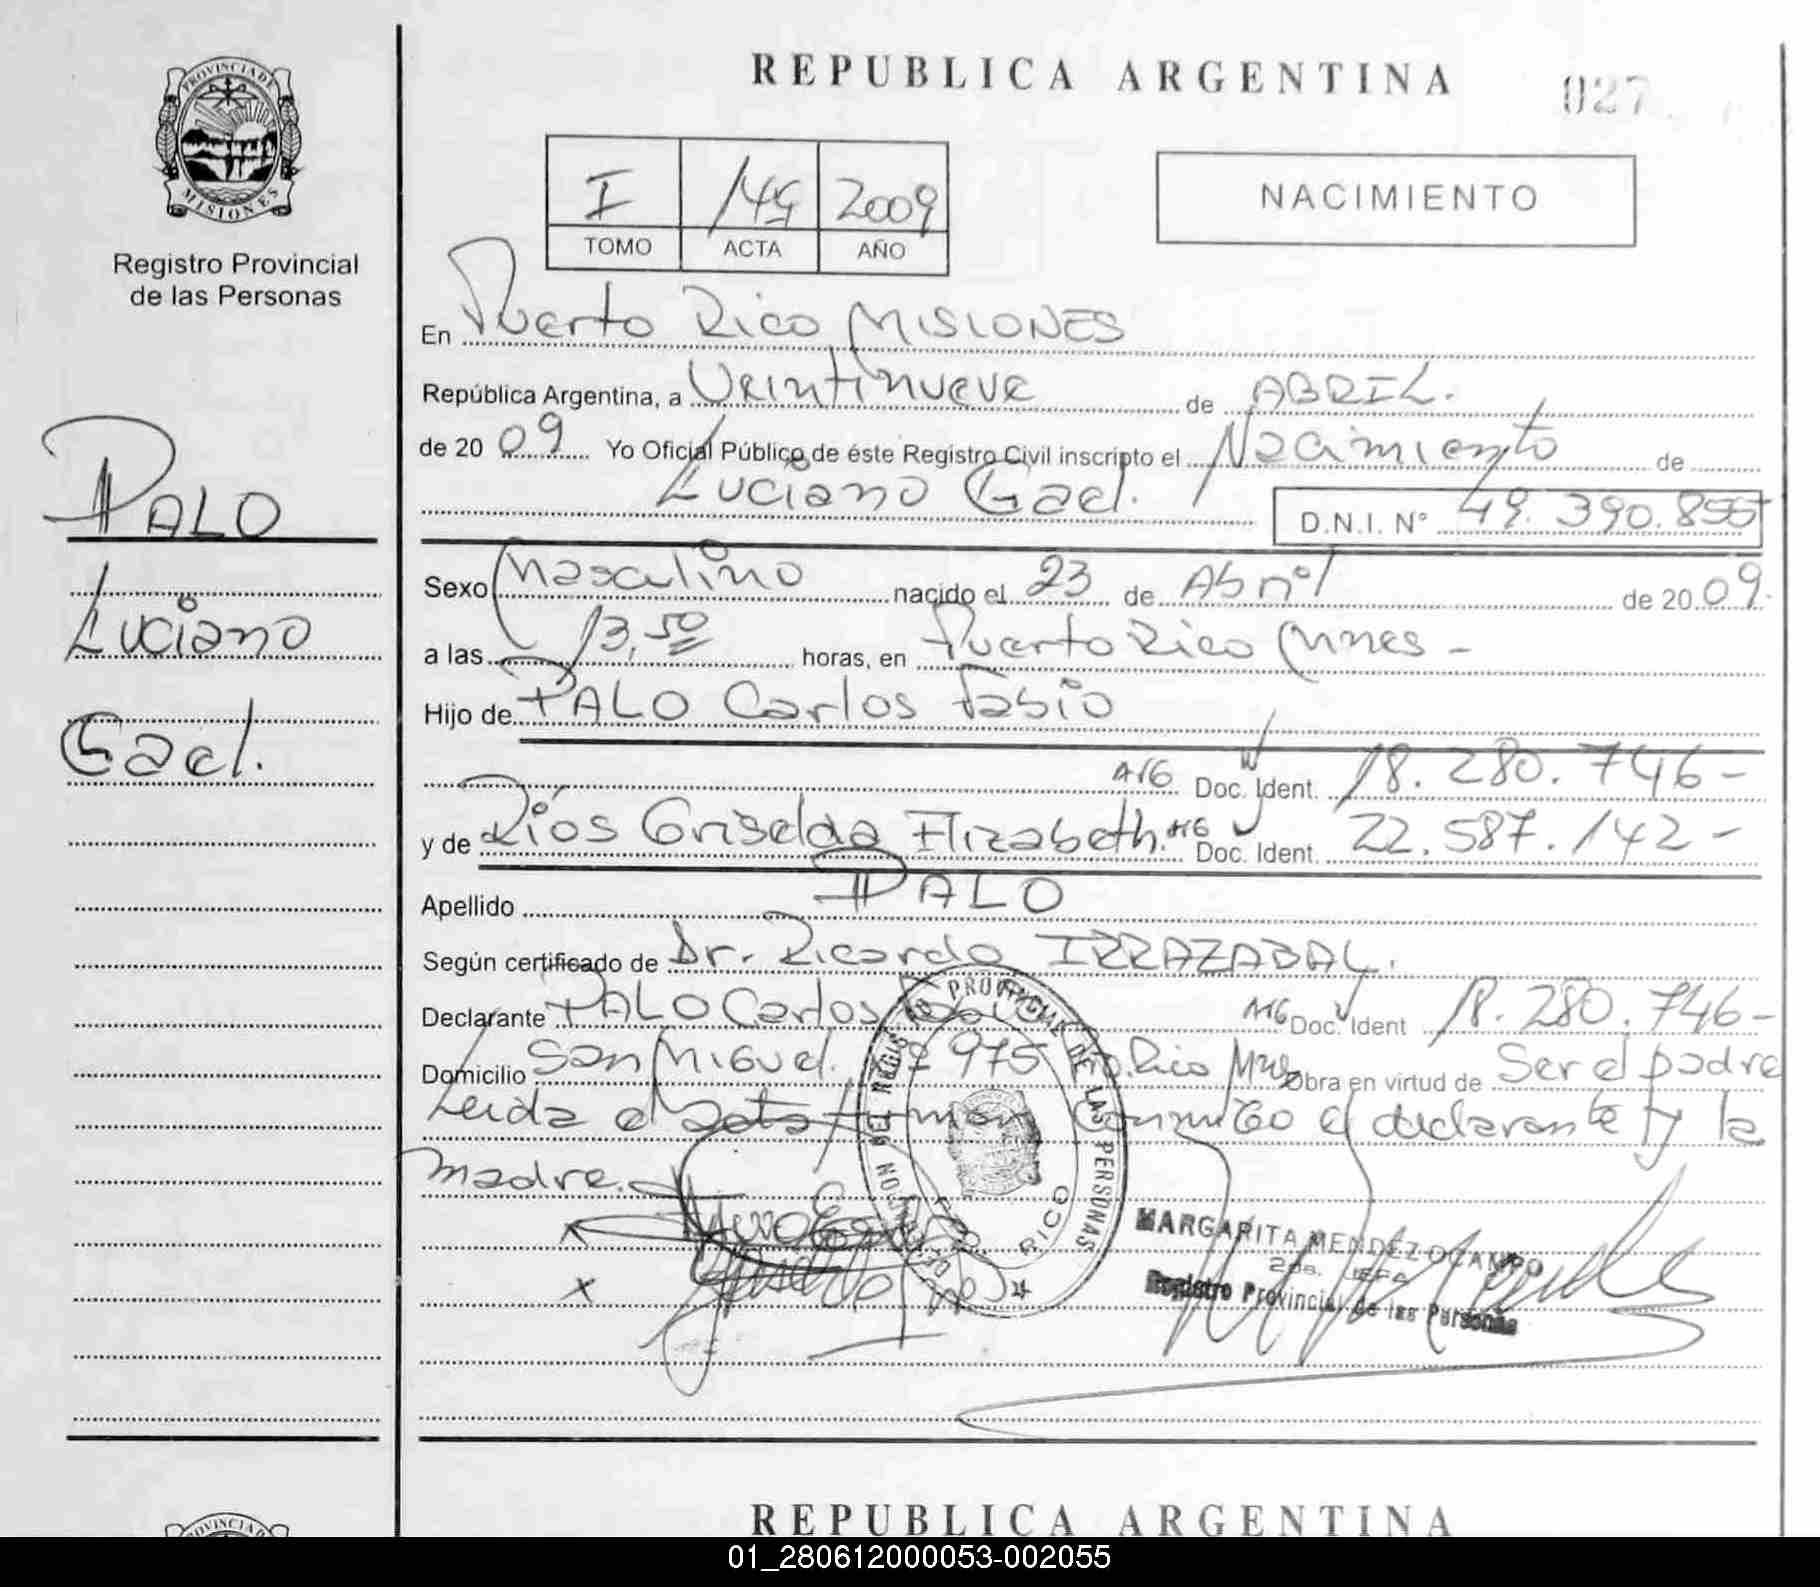 PROVINCIA DE
MISIONES
Registro Provincial
de las Personas
PALO
Luciano
Gael.
REPUBLICA ARGENTINA
027
I 145 2009
TOMO ACTA AÑO
NACIMIENTO
En Puerto Rico MISIONES
República Argentina, a Veintinueve de ABRIL.
de 20 09 Yo Oficial Público de éste Registro Civil inscripto el Nacimiento de
Luciano Gael. D.N.I. N° 49.390.855
Sexo Masculino nacido el 23 de Abril de 20 09.
a las 13,50 horas, en Puerto Rico Mnes -
Hijo de PALO Carlos Fabio
Arg Doc. Ident. 18.280.746-
y de Ríos Griselda Elizabeth. Arg Doc. Ident. 22.587.142-
Apellido PALO
Según certificado de Dr. Ricardo IRRAZABAL.
Declarante PALO Carlos Arg Doc. Ident 18.280.746-
Domicilio San Miguel. 975 Pto. Rico Mnes Obra en virtud de Ser el padre
Leída el acta firman conmigo el declarante y la
madre.
PROVINCIAL DE LAS PERSONAS
RICO
MARGARITA MENDEZ OCAMPO
2da. JEFA
Registro Provincial de las Personas
PROVINCIA DE
REPUBLICA ARGENTINA
01_280612000053-002055